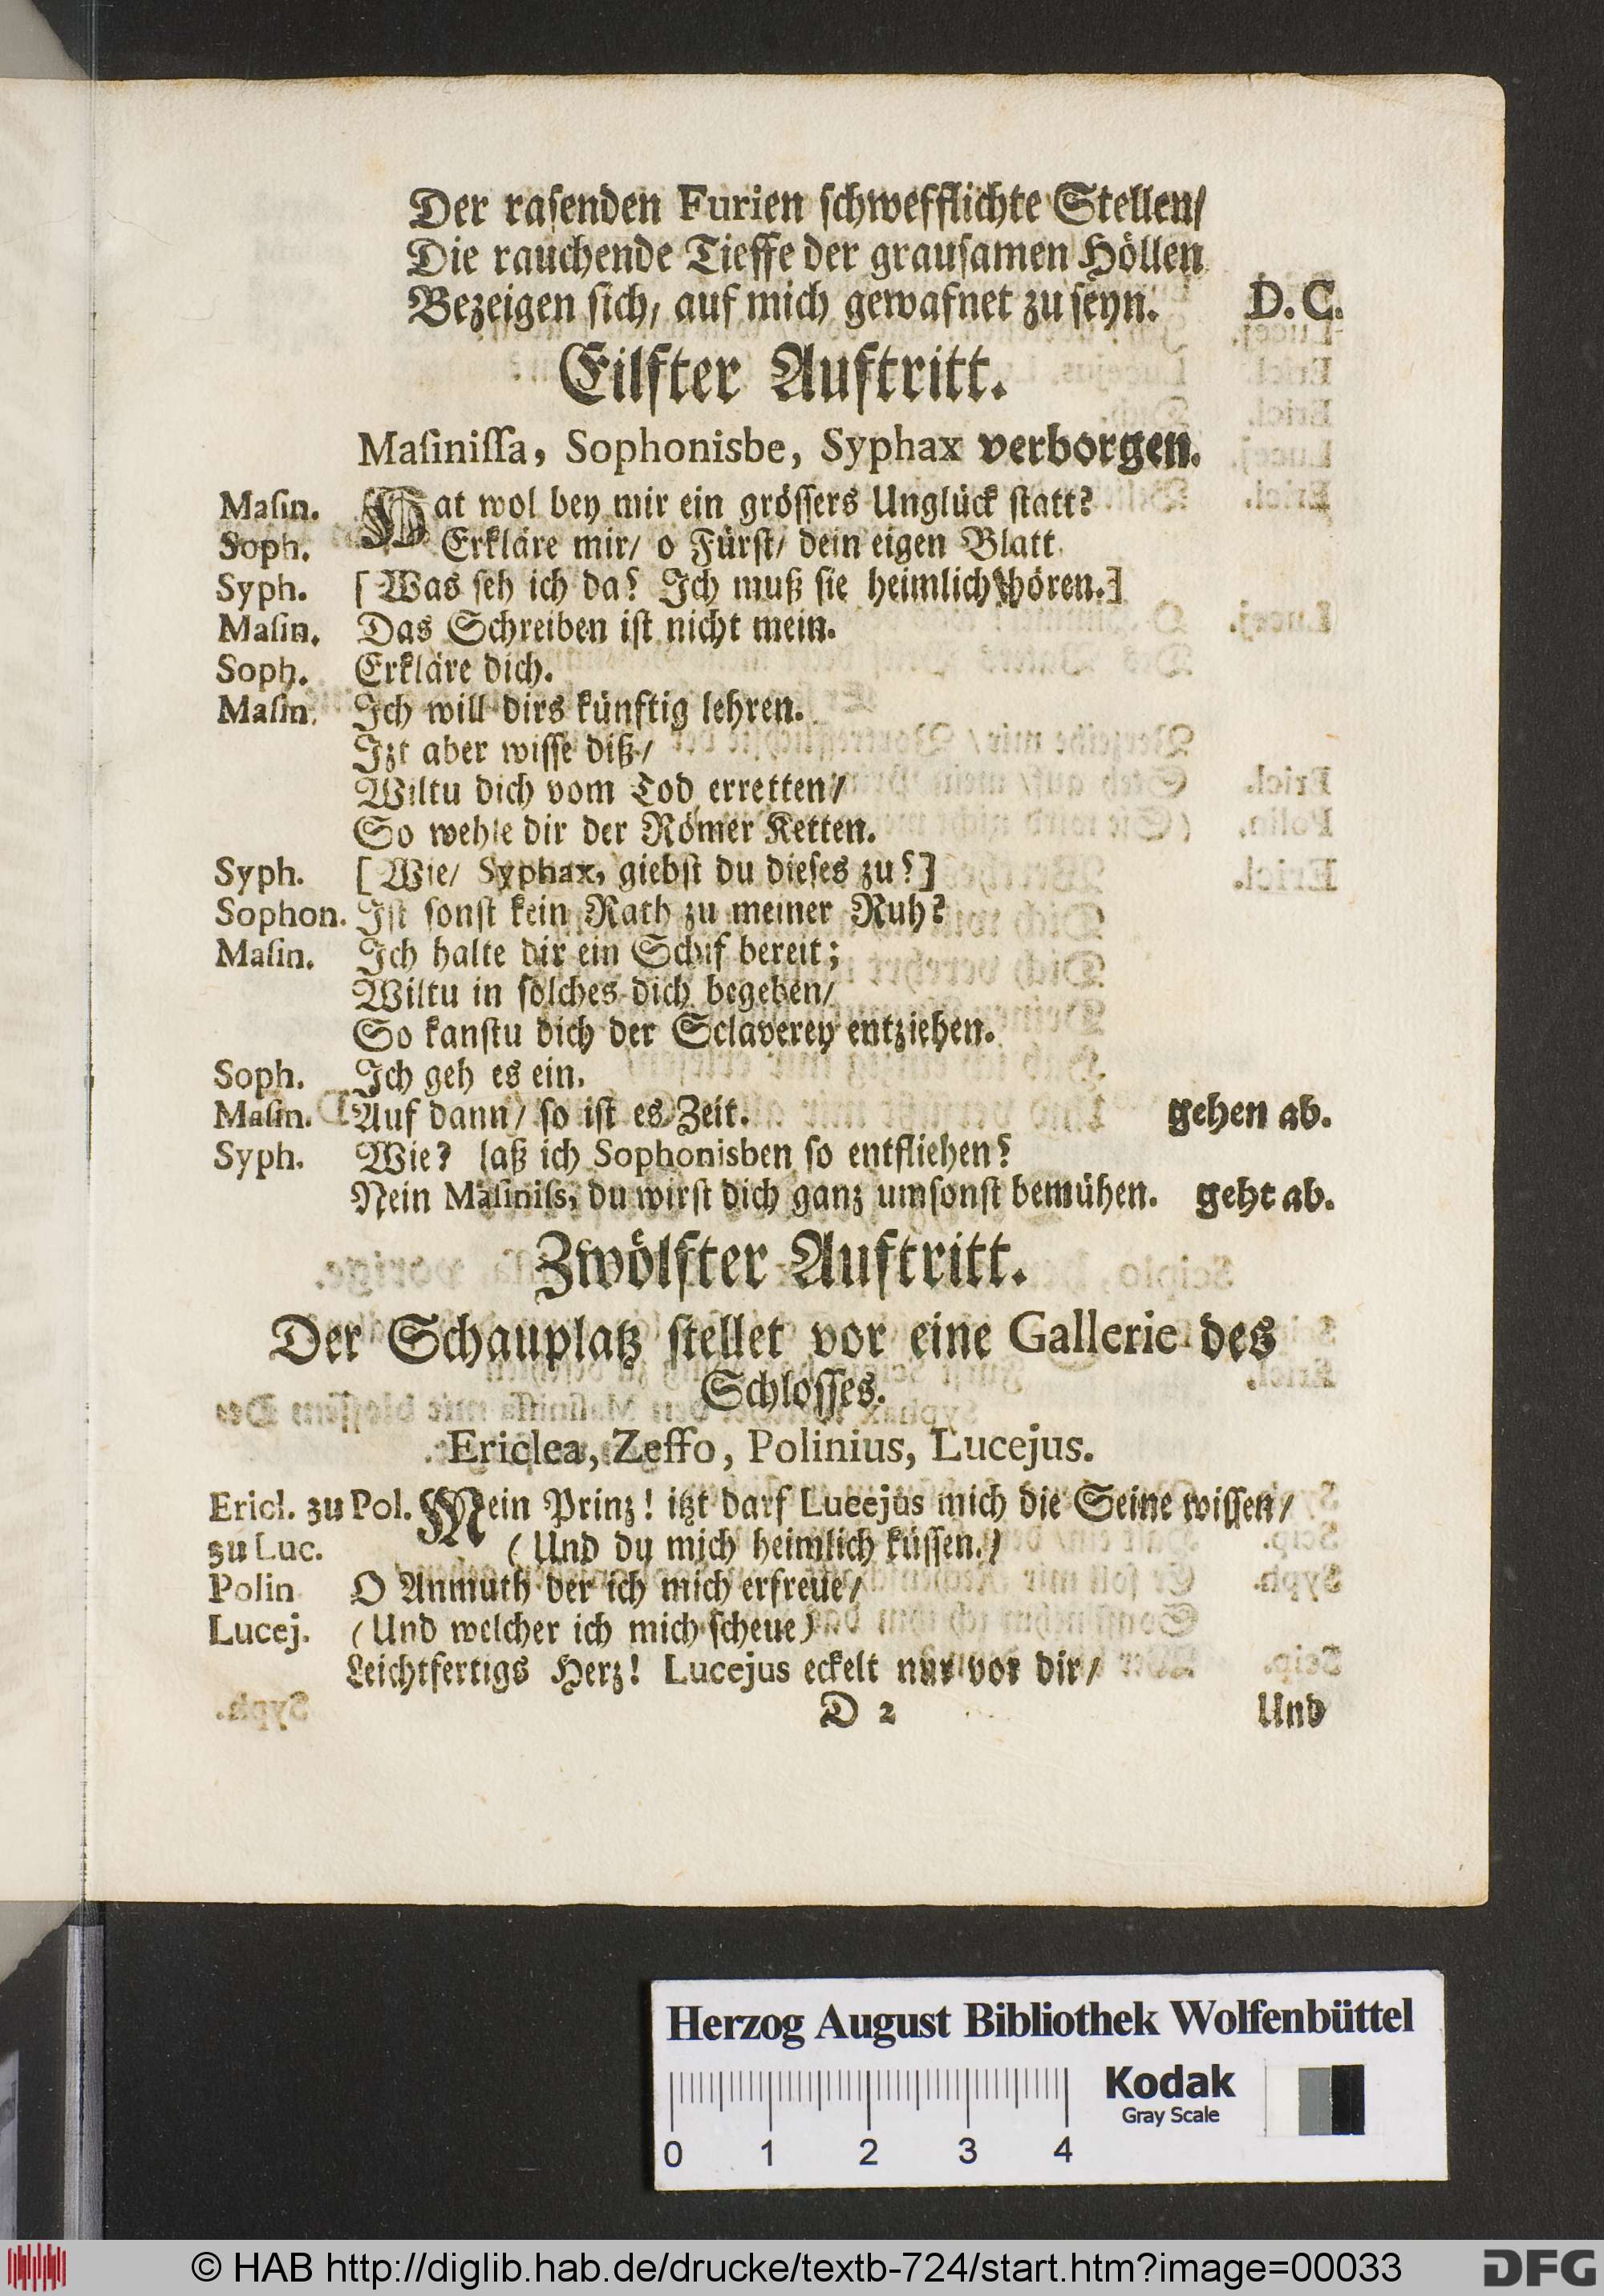 Der raſenden Furien ſchwefflichte Stellen/
Die rauchende Tieffe der grauſamen Höllen
Bezeigen ſich/ auf mich gewafnet zu ſeyn. D. C.
Eilfter Auftritt.
Maſiniſſa, Sophonisbe, Syphax verborgen.
Maſin. Hat wol bey mir ein gröſſers Unglück ſtatt?
Soph. Erkläre mir/ o Fürſt/ dein eigen Blatt.
Syph. [Was ſeh ich da? Ich muß ſie heimlich hören.]
Maſin. Das Schreiben iſt nicht mein.
Soph. Erkläre dich.
Maſin. Ich will dirs künftig lehren.
Izt aber wiſſe diß/
Wiltu dich vom Tod erretten/
So wehle dir der Römer Ketten.
Syph. [Wie/ Syphax, giebſt du dieſes zu?]
Sophon. Iſt ſonſt kein Rath zu meiner Ruh?
Maſin. Ich halte dir ein Schif bereit;
Wiltu in ſolches dich begeben/
So kanſtu dich der Sclaverey entziehen.
Soph. Ich geh es ein.
Maſin. Auf dann/ ſo iſt es Zeit. gehen ab.
Syph. Wie? laß ich Sophonisben ſo entfliehen?
Nein Maſiniſs, du wirſt dich ganz umſonſt bemühen. geht ab.
Zwölfter Auftritt.
Der Schauplatz ſtellet vor eine Gallerie des
Schloſſes.
Ericlea, Zeffo, Polinius, Lucejus.
Ericl. zu Pol. Mein Prinz! itzt darf Lucejus mich die Seine wiſſen/
zu Luc. (Und du mich heimlich küſſen.)
Polin O Anmuth der ich mich erfreue/
Lucej. (Und welcher ich mich ſcheue)
Leichtfertigs Herz! Lucejus eckelt nur vor dir/
D 2 Und
Herzog August Bibliothek Wolfenbüttel
Kodak
Gray Scale
0 1 2 3 4
© HAB http://diglib.hab.de/drucke/textb-724/start.htm?image=00033
DFG